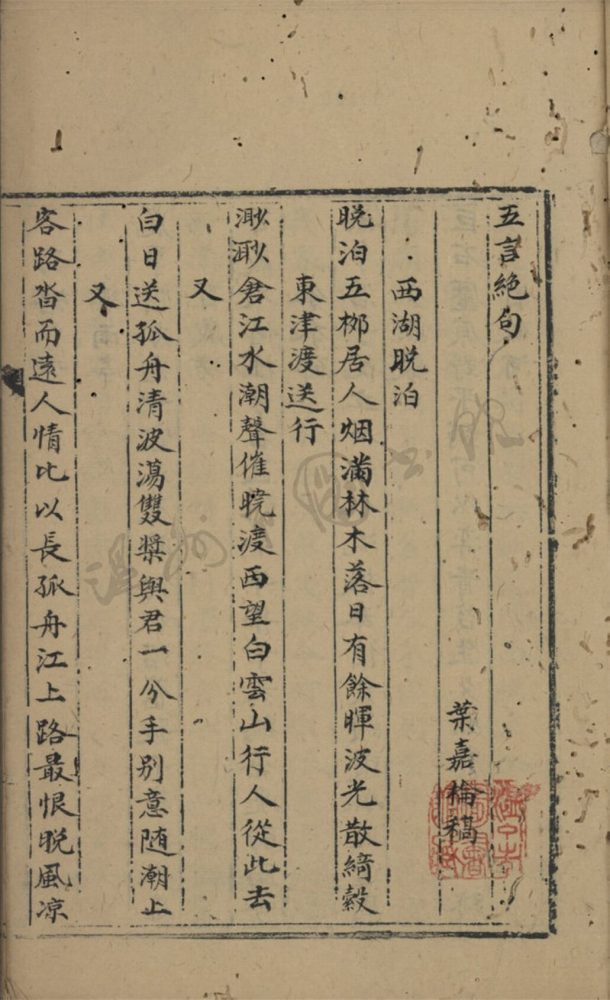 五言絕句
葉嘉棆稿
西湖晚泊
晚泊五桺居人烟滿林木落日有餘暉波光散綺縠
東津渡送行
渺渺倉江水潮聲催晚渡西望白雲山行人從此去
又
白日送孤舟清波蕩雙槳與君一分手别意随潮上
又
客路沓而遠人情比以長孤舟江上路最恨晚風凉